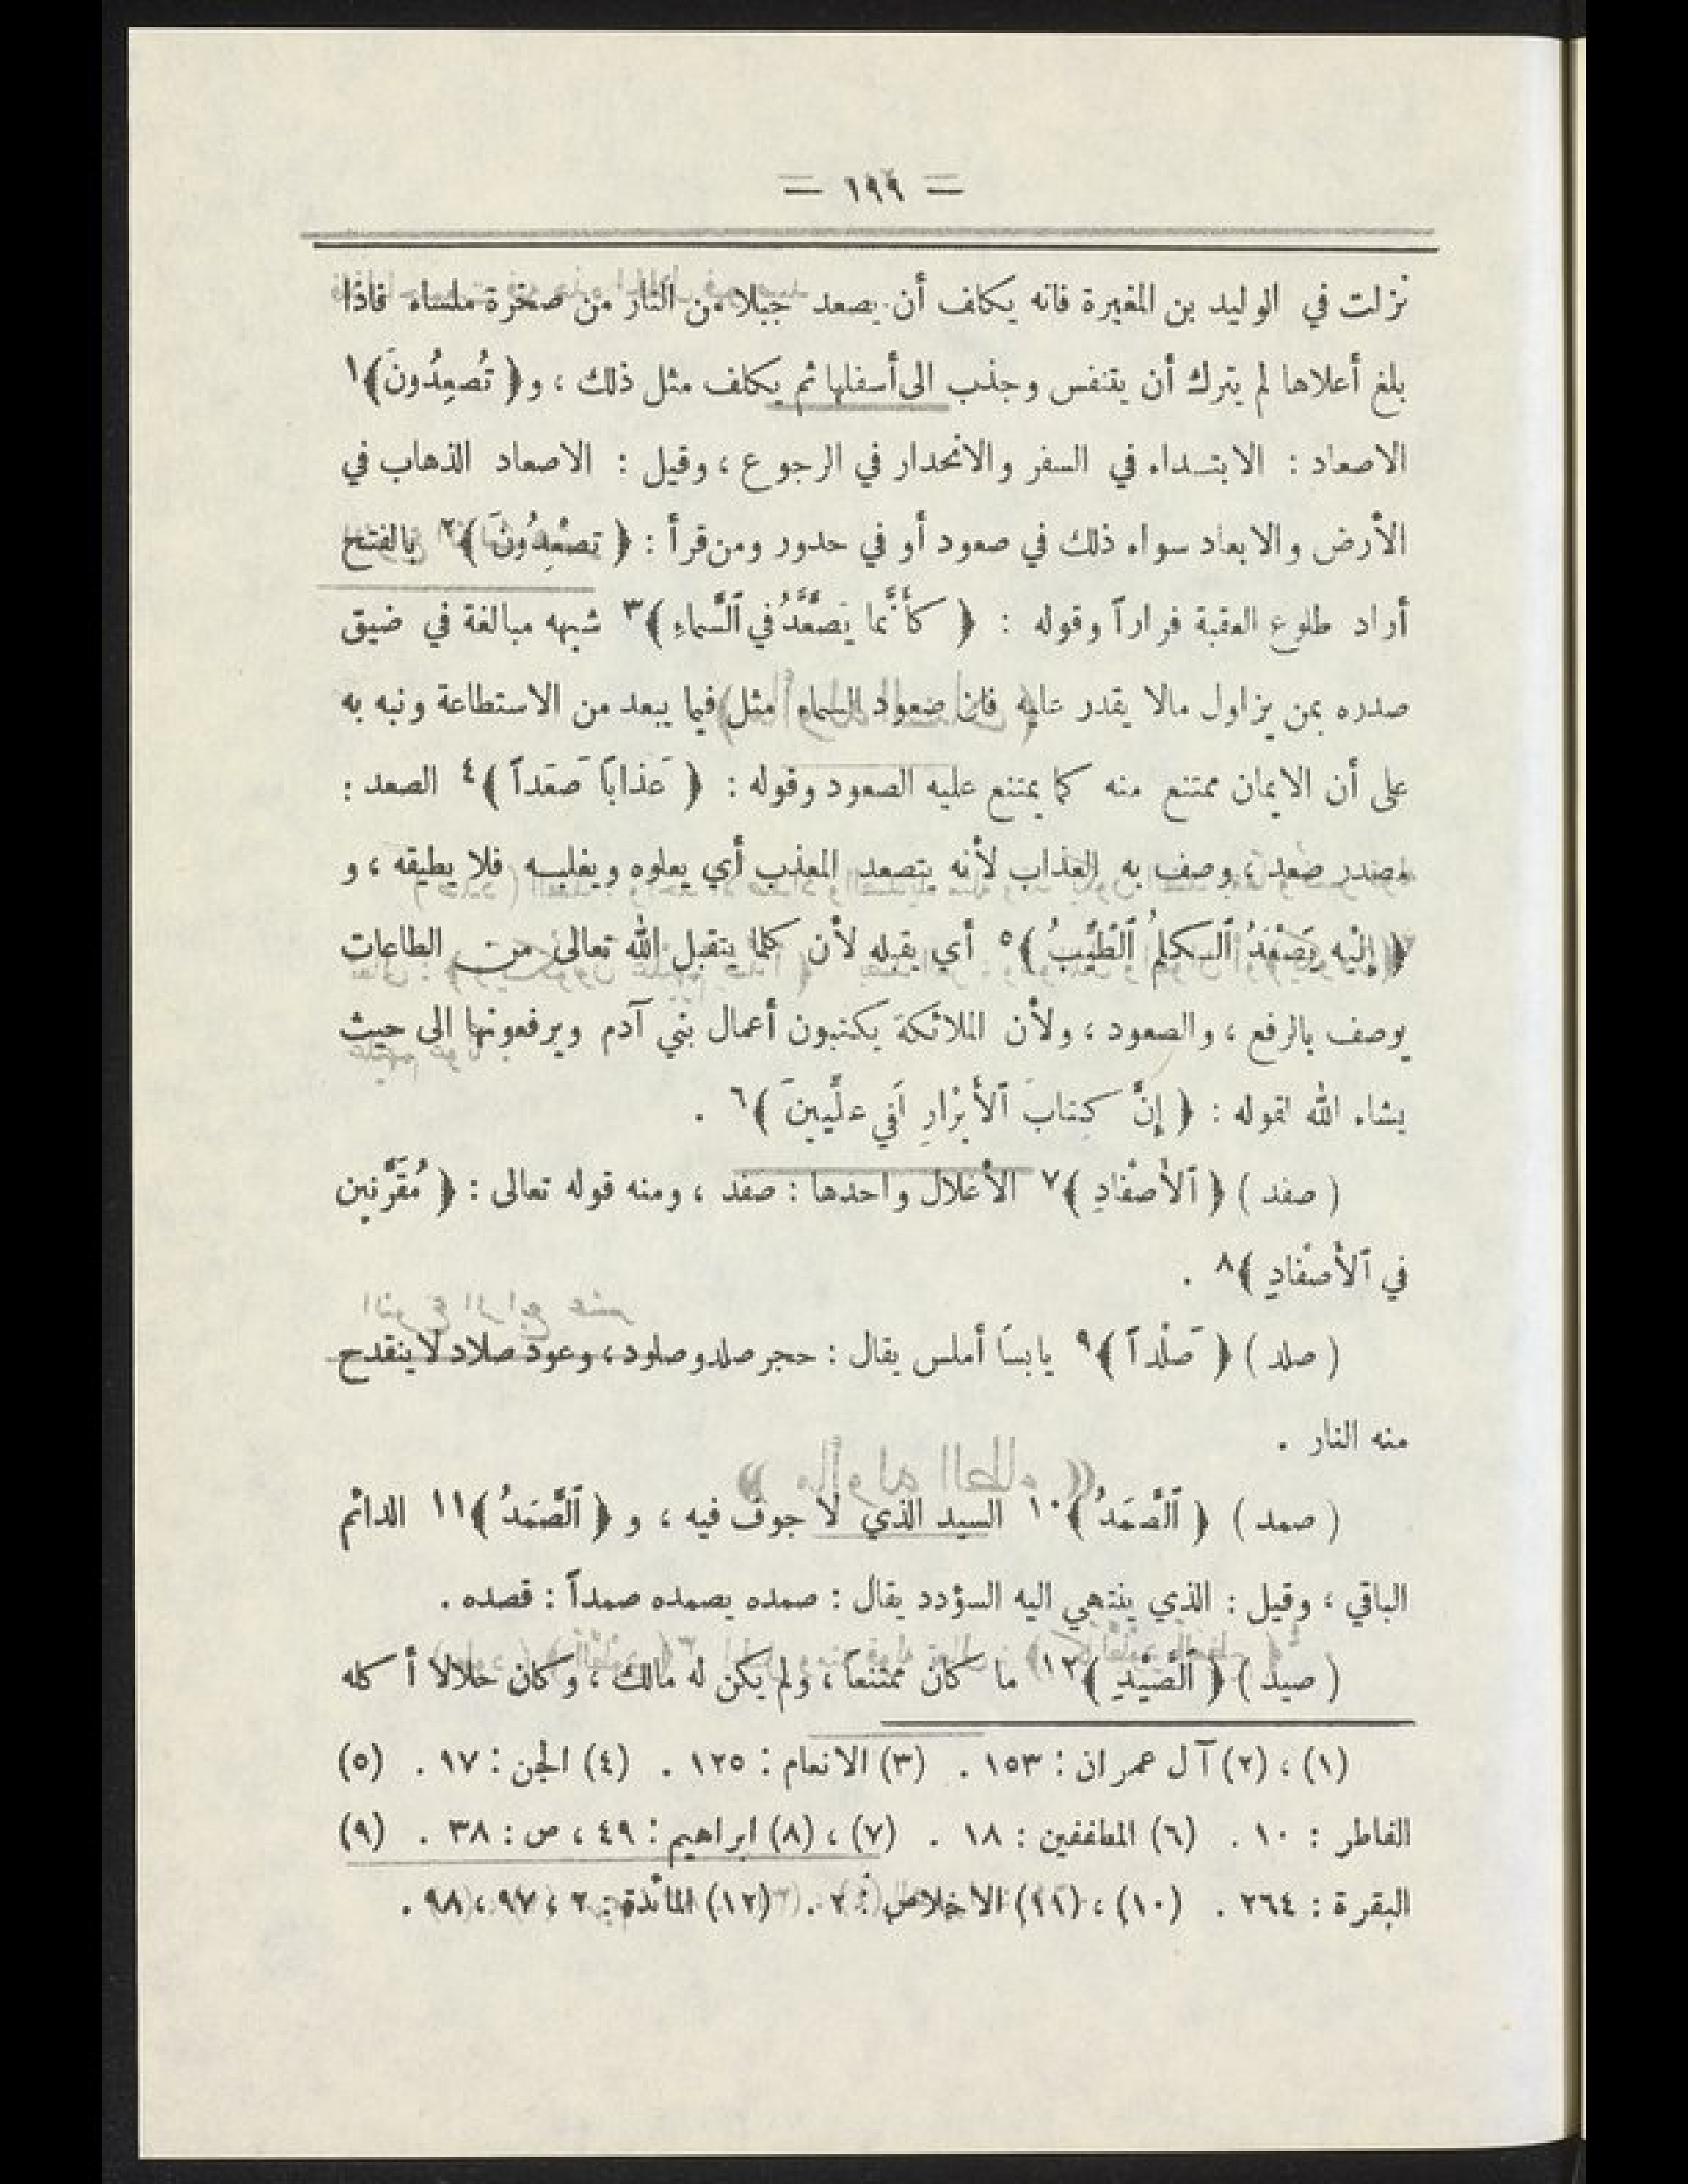 — ١٩٩ —
نزلت في الوليد بن المغيرة فانه يكلف أن يصعد جبلا من النار من صخرة ملساء فاذا
بلغ أعلاها لم يترك أن يتنفس وجذب الى أسفلها ثم يكلف مثل ذلك ، و ﴿ تُصعِدُونَ ﴾١
الاصعاد : الابتـداء في السفر والانحدار في الرجوع ، وقيل : الاصعاد الذهاب في
الأرض والابعاد سواء ذلك في صعود أو في حدور ومن قرأ : ﴿ تصْعِدُونَ ﴾٢ بالفتح
أراد طلوع العقبة فراراً وقوله : ﴿ كأَنَّما يَصَّعَّدُ في ٱلسَّماءِ ﴾٣ شبهه مبالغة في ضيق
صدره بمن يزاول مالا يقدر عليه فان صعود السماء مثل فيما يبعد من الاستطاعة ونبه به
على أن الايمان ممتنع منه كما يمتنع عليه الصعود وقوله : ﴿ عَذاباً صَعَداً ﴾٤ الصعد :
مصدر صعد ، وصف به العذاب لأنه يتصعد المعذب أي يعلوه ويغلبـه فلا يطيقه ، و
﴿ إِلَيْه يَصْعَدُ ٱلـكلِمُ ٱلطَّيِّبُ ﴾٥ أي يقبله لأن كلما يتقبل الله تعالى من الطاعات
يوصف بالرفع ، والصعود ، ولأن الملائكة يكتبون أعمال بني آدم ويرفعونها الى حيث
يشاء الله لقوله : ﴿ إِنَّ كِتابَ ٱلأَبْرَارِ لَفي علِّيينَ ﴾٦ .
( صفد ) ﴿ ٱلأَصْفَادِ ﴾٧ الأغلال واحدها : صفد ، ومنه قوله تعالى : ﴿ مُقَرَّنين
في ٱلأَصْفَادِ ﴾٨ .
( صلد ) ﴿ صَلْداً ﴾٩ يابساً أملس يقال : حجر صلد وصلود ، وعود صلاد لا ينقدح
منه النار .
( صمد ) ﴿ ٱلصَّمَدُ ﴾١٠ السيد الذي لا جوف فيه ، و ﴿ ٱلصَّمَدُ ﴾١١ الدائم
الباقي ، وقيل : الذي ينتهي اليه السؤدد يقال : صمده يصمده صمداً : قصده .
( صيد ) ﴿ ٱلصَّيْدِ ﴾١٢ ما كان ممتنعاً ، ولم يكن له مالك ، وكان حلالا أكله
(١) ، (٢) آل عمران : ١٥٣ . (٣) الانعام : ١٢٥ . (٤) الجن : ١٧ . (٥)
الفاطر : ١٠ . (٦) المطففين : ١٨ . (٧) ، (٨) ابراهيم : ٤٩ ، ص : ٣٨ . (٩)
البقرة : ٢٦٤ . (١٠) ، (١١) الاخلاص : ٢ . (١٢) المائدة : ٢ ، ٩٧ ، ٩٨ .